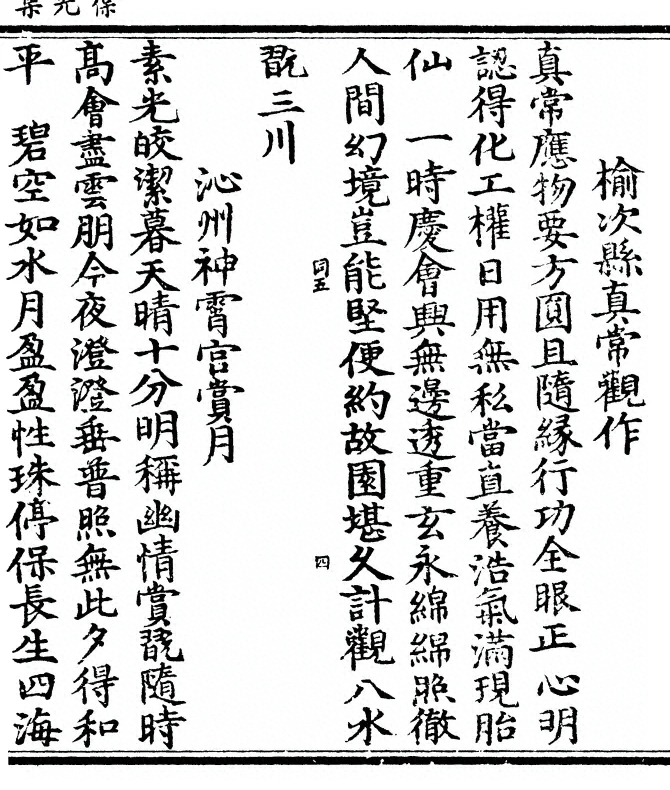 榆次縣真常觀作
真常應物要方圓且隨緣行功全眼正心明
認得化工權日用無私當直養浩氣滿現胎
仙　一時慶會興無邊透重玄永綿綿照徹
同五
四
人間幻境豈能堅便約故園堪久計觀八水
翫三川
沁州神霄宮賞月
素光皎潔暮天晴十分明稱幽情賞翫隨時
高會盡雲朋今夜澄澄垂普照無此夕得和
平　碧空如水月盈盈性珠停保長生四海